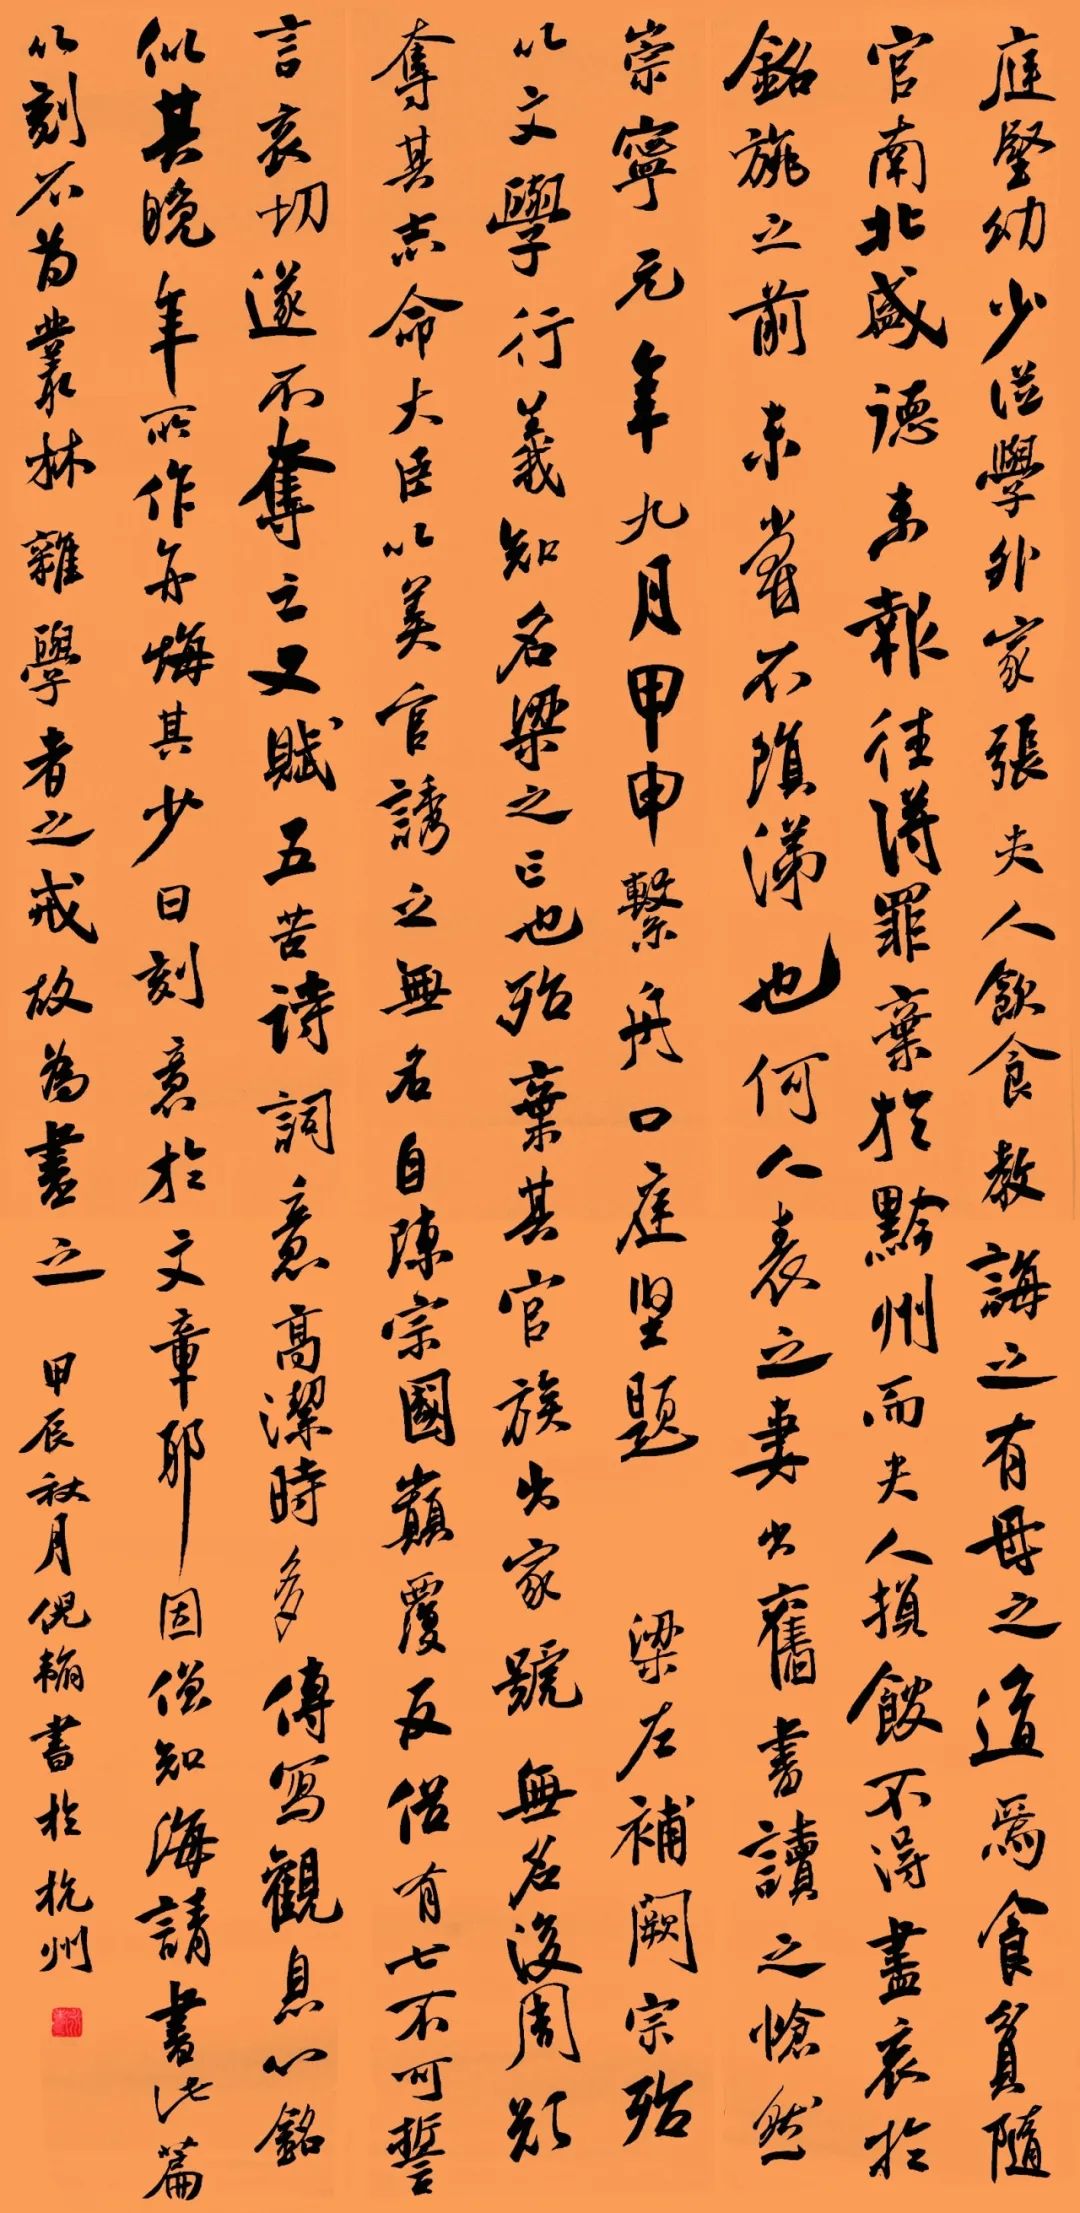 庭堅幼少從學外家張夫人飲食教誨之有母之道焉食貧隨
官南北盛德未報往得罪棄於黔州而夫人損館不得盡哀於
銘旐之前未嘗不隕涕也何人表之妻出舊書讀之愴然
崇寧元年九月甲申繫舟口庭坚題 梁左補闕宗殆
以文學行義知名梁之亡也殆棄其官族出家號無名後周欲
奪其志命大臣以美官誘之無名自陳宗國巔覆反俗有七不可誓
言哀切遂不奪之又賦五苦詩詞意高潔時多傳寫觀息心銘
似其晚年所作亦悔其少日刻意於文章耶因僧知海請書此篇
以刻石為叢林雜學者之戒故為書之 甲辰秋月倪翰書於杭州